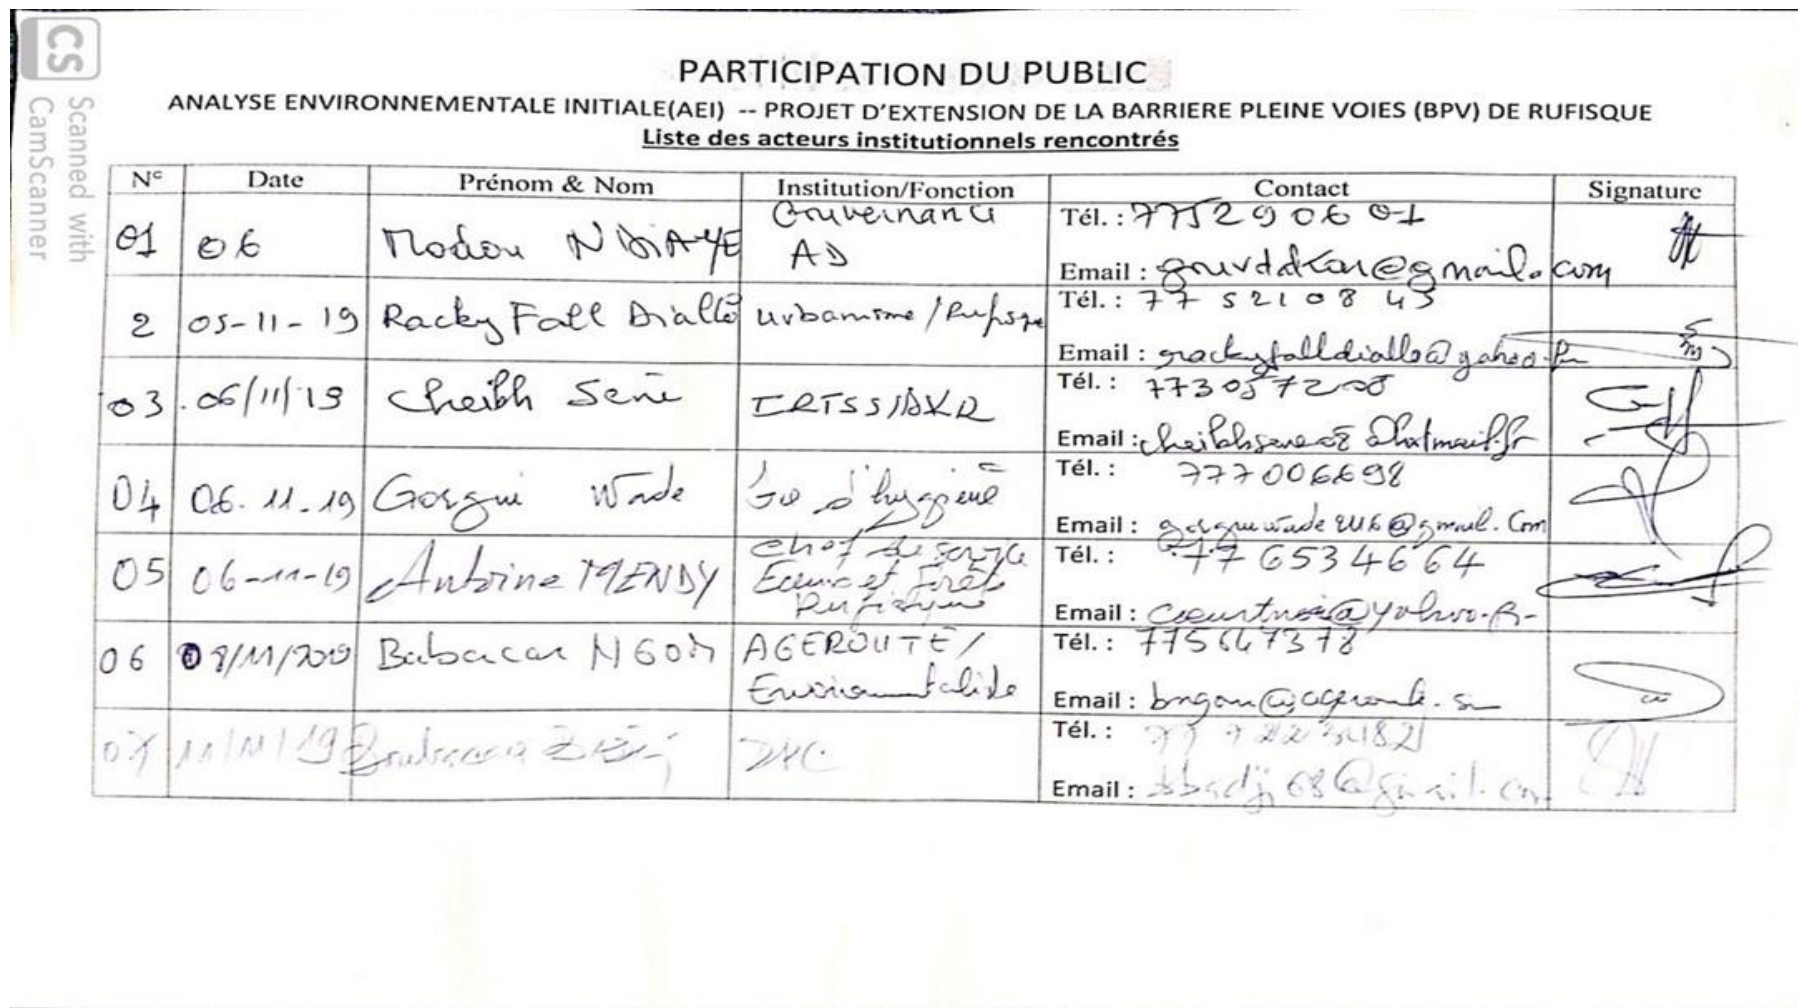 CS
Scanned with
CamScanner
PARTICIPATION DU PUBLIC
ANALYSE ENVIRONNEMENTALE INITIALE(AEI) -- PROJET D'EXTENSION DE LA BARRIERE PLEINE VOIES (BPV) DE RUFISQUE
Liste des acteurs institutionnels rencontrés
N° Date Prénom & Nom Institution/Fonction Contact Signature
01 06 Modou NDIAYE Gouvernance AD Tél. : 775290601
Email : gouvdakar@gmail.com
2 05-11-19 Racky Fall Diallo urbanisme/Rufisque Tél. : 77 5210843
Email : rackyfalldiallo@yahoo.fr
03 06/11/19 Cheikh Sene IRTSS/DKR Tél. : 
Email : cheikhsene08@hotmail.fr
04 06.11.19 Gorgui Wade d'hygiène Tél. : 777006698
Email : @gmail.Com
05 06-11-19 Antoine MENDY Chef de service
Eaux et Forêts
Rufisque Tél. : 776534664
Email : @yahoo.fr
06 Babacar NGOM AGEROUTE/
Environnementaliste Tél. : 775647378
Email : bngom@ageroute.sn
07 11/11/19 Tél. :
Email :